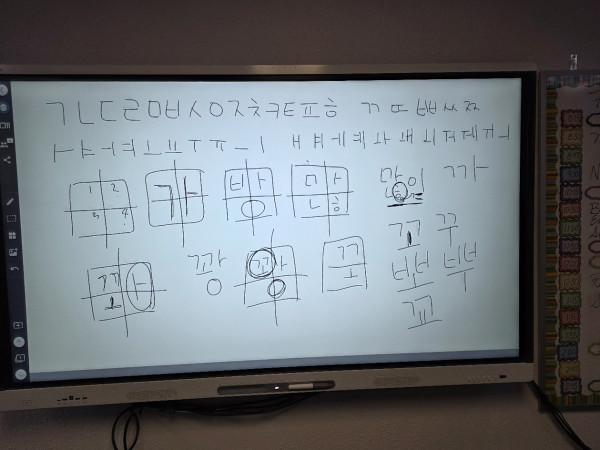 ㄱㄴㄷㄹㅁㅂㅅㅇㅈㅊㅋㅌㅍㅎ ㄲ ㄸ ㅃ ㅆ ㅉ
ㅏㅑㅓㅕㅗㅛㅜㅠㅡㅣ ㅐㅒㅔㅖㅘㅙㅚㅝㅞㅟㅢ
1 2 3 4 가 방 많 많이 까
꼬 꾸
꽈 꽝 꽝 꼬 뽀 뿌
꾜